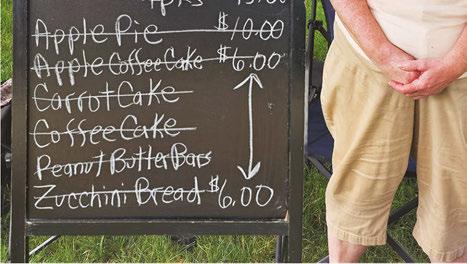 Apple Pie $10.00
Apple Coffee Cake $6.00
Carrot Cake
Coffee Cake
Peanut Butter Bars
Zucchini Bread $6.00